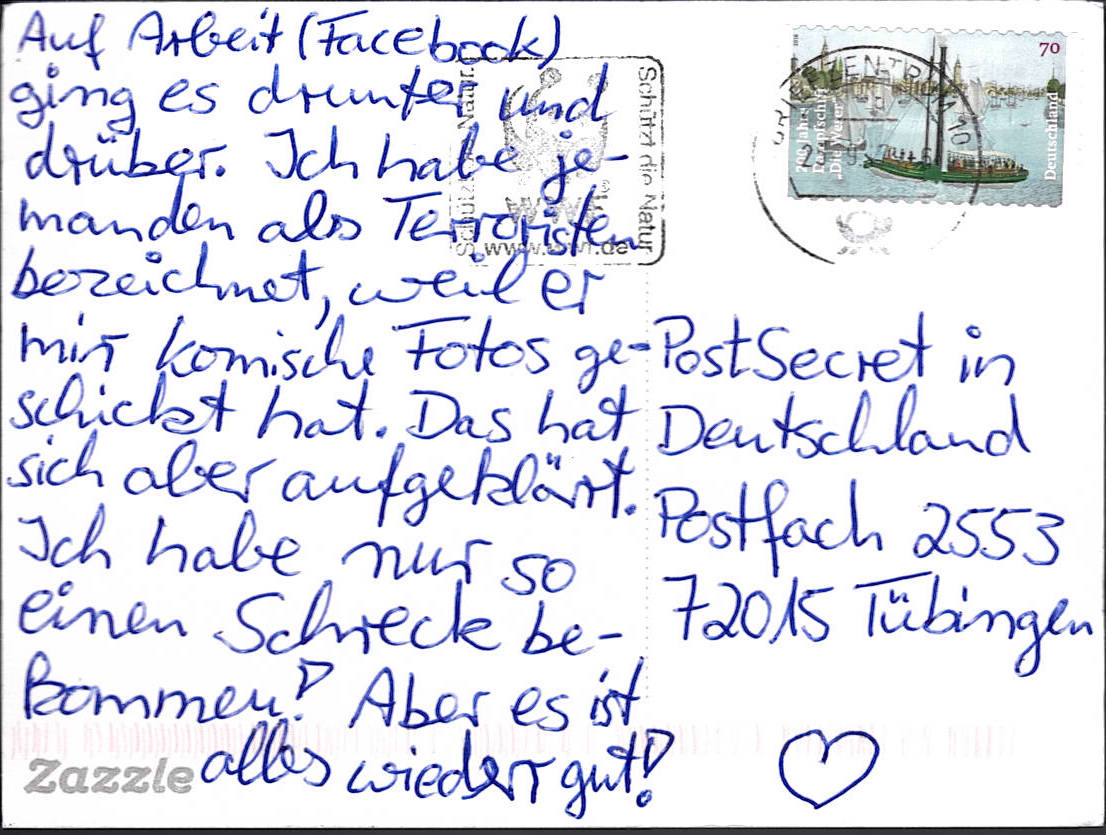 Auf Arbeit (Facebook)
ging es drunter und
drüber. Ich habe je-
manden als Terroristen
bezeichnet, weil er
mir komische Fotos ge-
schickt hat. Das hat
sich aber aufgeklärt.
Ich habe nur so
einen Schreck be-
kommen! Aber es ist
alles wieder gut!
Zazzle
Schützt die Natur
Schützt die Natur
WWF
www.wwf.de
70
Deutschland
200 Jahre
Dampfschiff
„Die Weser“
BRIEFZENTRUM 10
PostSecret in
Deutschland
Postfach 2553
72015 Tübingen